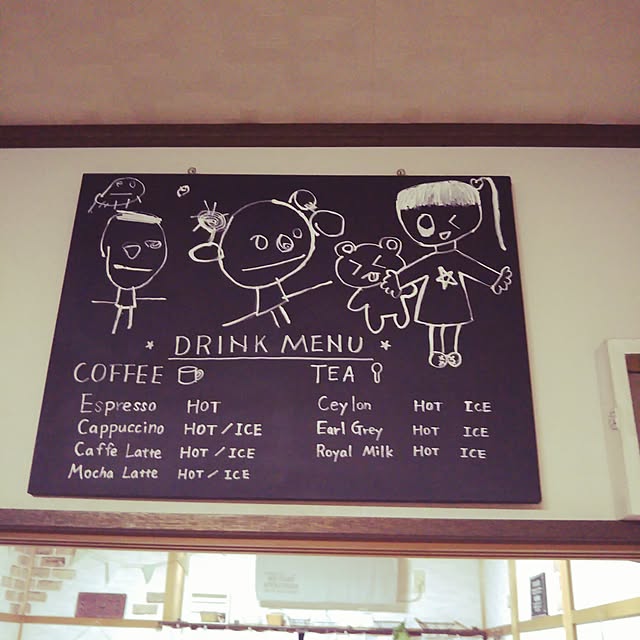 DRINK MENU
COFFEE
Espresso HOT
Cappuccino HOT/ICE
Caffè Latte HOT/ICE
Mocha Latte HOT/ICE
TEA
Ceylon HOT ICE
Earl Grey HOT ICE
Royal Milk HOT ICE